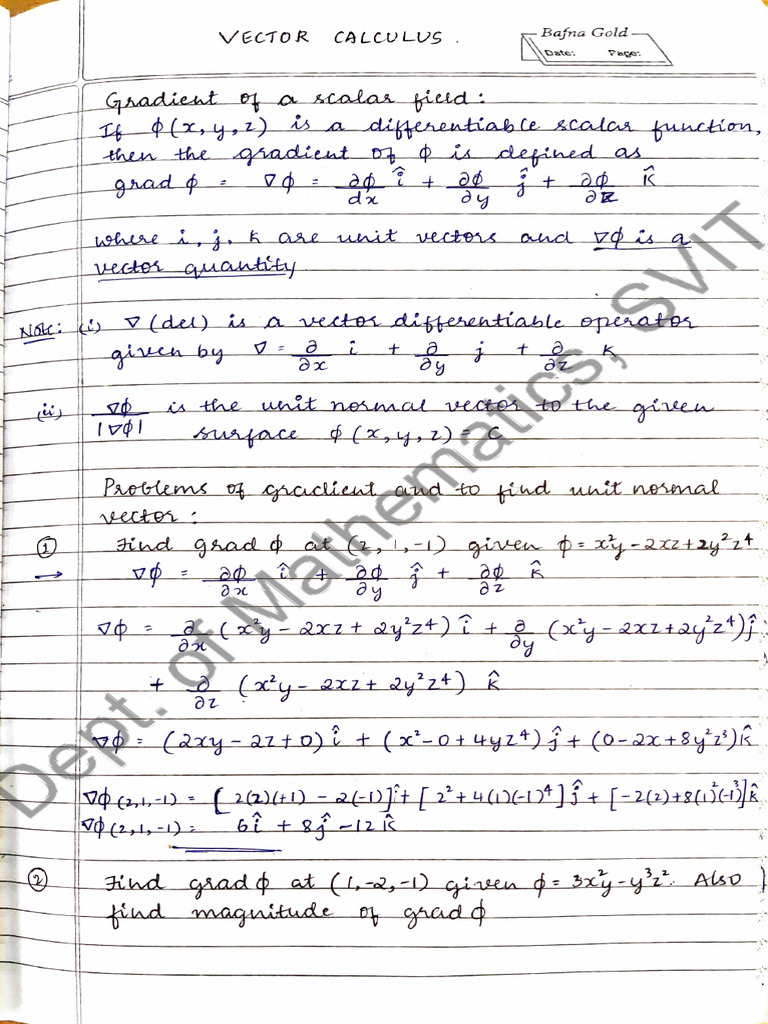 VECTOR CALCULUS.
Bafna Gold
Date: Page:
Gradient of a scalar field:
If ϕ(x,y,z) is a differentiable scalar function,
then the gradient of ϕ is defined as
grad ϕ = ∇ϕ = ∂ϕ/dx î + ∂ϕ/∂y ĵ + ∂ϕ/∂z k̂
where i, j, k are unit vectors and ∇ϕ is a
vector quantity
Note: (i) ∇ (del) is a vector differentiable operator
given by ∇ = ∂/∂x i + ∂/∂y j + ∂/∂z k
(ii) ∇ϕ/|∇ϕ| is the unit normal vector to the given
surface ϕ(x,y,z) = C
Problems of gradient and to find unit normal
vector:
① Find grad ϕ at (2, 1, -1) given ϕ = x²y - 2xz + 2y²z⁴
→ ∇ϕ = ∂ϕ/∂x î + ∂ϕ/∂y ĵ + ∂ϕ/∂z k̂
∇ϕ = ∂/∂x (x²y - 2xz + 2y²z⁴) î + ∂/∂y (x²y - 2xz + 2y²z⁴) ĵ
+ ∂/∂z (x²y - 2xz + 2y²z⁴) k̂
∇ϕ = (2xy - 2z + 0) î + (x² - 0 + 4yz⁴) ĵ + (0 - 2x + 8y²z³) k̂
∇ϕ(2,1,-1) = [2(2)(+1) - 2(-1)] î + [2² + 4(1)(-1)⁴] ĵ + [-2(2) + 8(1)²(-1)³] k̂
∇ϕ(2,1,-1) = 6î + 8ĵ - 12k̂
② Find grad ϕ at (1, -2, -1) given ϕ = 3x²y - y³z². Also
find magnitude of grad ϕ
Dept. of Mathematics, SVIT